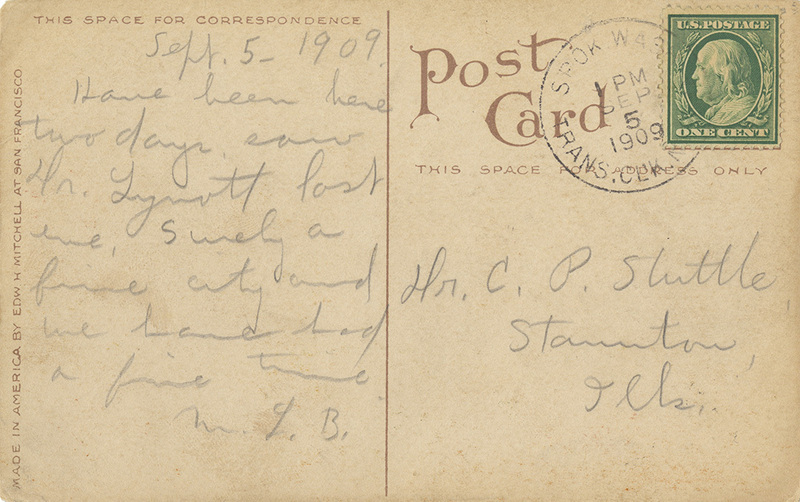 THIS SPACE FOR CORRESPONDENCE
Sept. 5 - 1909.
Have been here
two days, saw
Dr. Lynott last
eve, Surely a
fine city and
we have had
a fine time.
M. L. B.
MADE IN AMERICA BY EDW H MITCHELL AT SAN FRANCISCO
Post
Card
THIS SPACE FOR ADDRESS ONLY
U.S. POSTAGE
ONE CENT
SPOK WAS
1 PM
SEP
5
1909
TRANS. CLK.
Dr. C. P. Stuttle,
Staunton,
Ills.